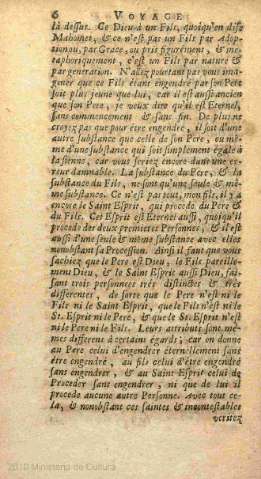 6 VOYAGE
là dessus. Ce Dieu a un Fils, quoiqu'en dise
Mahomet, & ce n'est pas un Fils par adop-
tion ou, par Grace, ou pris figurément, & mé-
taphoriquement, c'est un Fils par nature &
par generation. N'allez pourtant pas vous ima-
giner que ce Fils étant engendré par son Pere
soit plus jeune que lui, car il est aussi ancien
que son Pere, je veux dire qu'il est Eternel,
sans commencement & sans fin. De plus ne
croyez pas que pour être engendré, il soit d'une
autre substance que celle de son Pere, ou mê-
me d'une substance qui soit simplement égale à
la sienne, car vous seriez encore dans une er-
reur damnable. La substance du Pere, & la
substance du Fils, ne sont qu'une seule & mê-
me substance. Ce n'est pas tout, mon fils, il y a
encore le Saint Esprit, qui procede du Pere &
du Fils. Cet Esprit est Eternel aussi, quoiqu'il
procede des deux premieres Personnes, & il est
aussi d'une seule & même substance avec elles
nonobstant sa Procession. Ainsi il faut que vous
sachiez que le Pere est Dieu, le Fils pareille-
ment Dieu, & le Saint Esprit aussi Dieu, fai-
sant trois personnes très distinctes & très
differentes, de sorte que le Pere n'est ni le
Fils ni le Saint Esprit, que le Fils n'est ni le
St. Esprit ni le Pere, & que le St. Esprit n'est
ni le Pere ni le Fils. Leurs attributs sont mê-
mes differens à certains égards; car on donne
au Pere celui d'engendrer éternellement sans
être engendré, au fils celui d'être engendré
sans engendrer, & au Saint Esprit celui de
Proceder sans engendrer, ni que de lui il
procede aucune autre Personne. Avec tout ce-
la, & nonobstant ces saintes & incontestables
veritez
2010 Ministerio de Cultura